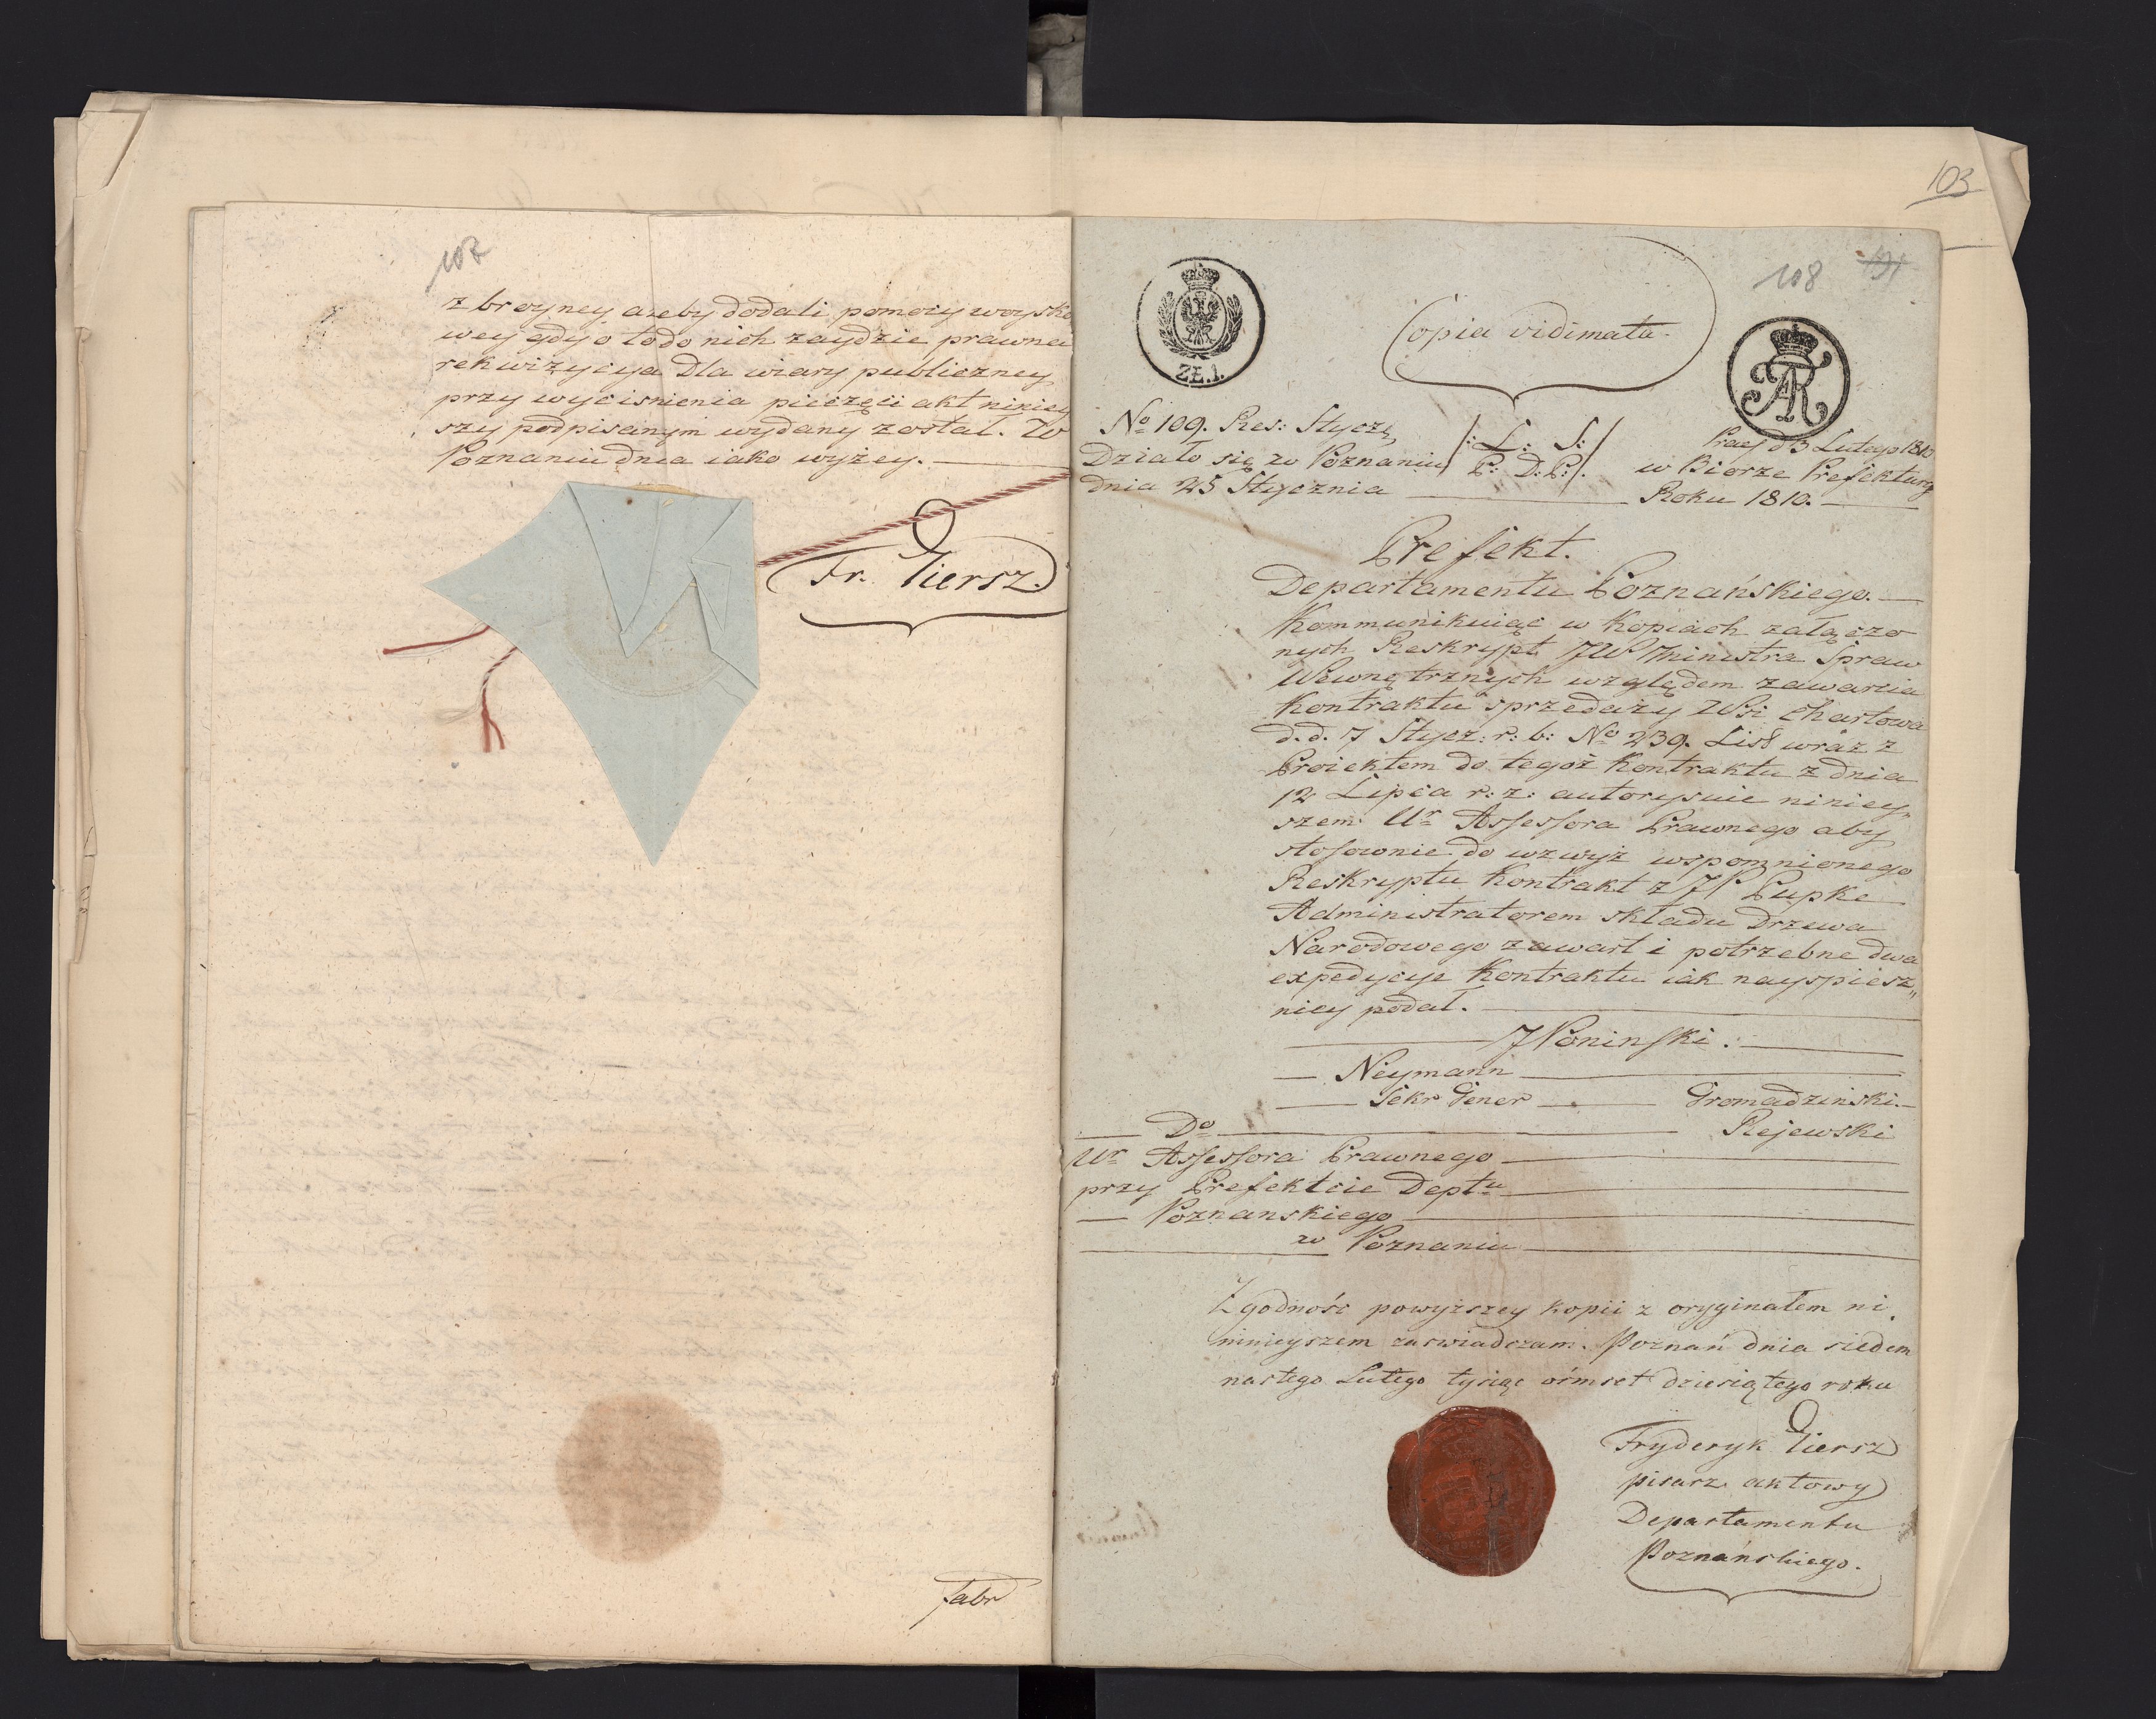 107
zbroyney ażeby dodali pomocy woysko
wey gdy o to do nich zaydzie prawna
rekwizycya Dla wiary publiczney
przy wyciśnieniu pieczęci akt niniey
szy podpisanym wydany został. W
Poznaniu dnia iako wyżey.
Fr. Giersz
fabr
103
108 191
Copia vidimata
ZŁ. 1.
AR
No 109. Res: Stycz
Działo się w Poznaniu
dnia 25 Stycznia
/:L: S:/
P: D: P:/.
Praes d 3 Lutego 1810
w Biorze Prefektury
Roku 1810.
Prefekt.
Departamentu Poznańskiego.
Kommunikuiąc w Kopiach załączo
nych Reskrypt JW Ministra Spraw
Wewnętrznych względem zawarcia
Kontraktu sprzedaży Wsi Chartowa
d. d. 7 Stycz: r: b: No 239. List wraz z
Proiektem do tegoż Kontraktu z dnia
12 Lipca r: z: autorysuie niniey„
szem Ur Assessora Prawnego aby
stosownie do wzwyż wspomnionego
Reskryptu Kontrakt z JP Pupke
Administratorem składu Drzewa
Narodowego zawarł i potrzebne dwa
expedycye Kontraktu iak nayspiesz„
niey podał.
J Poninski.
Neymann
Sekr Gener Gromadzinski.
Do Rejewski
Ur Assessora Prawnego
przy Prefekturze Deptu
Poznanskiego
w Poznaniu
Zgodność powyższey kopii z oryginałem ni
ninieyszem zaswiadczam. Poznań dnia siedem
nastego Lutego tysiąc ośmset dziesiątego roku
Fryderyk Giersz
pisarz aktowy
Departamentu
Poznańskiego.